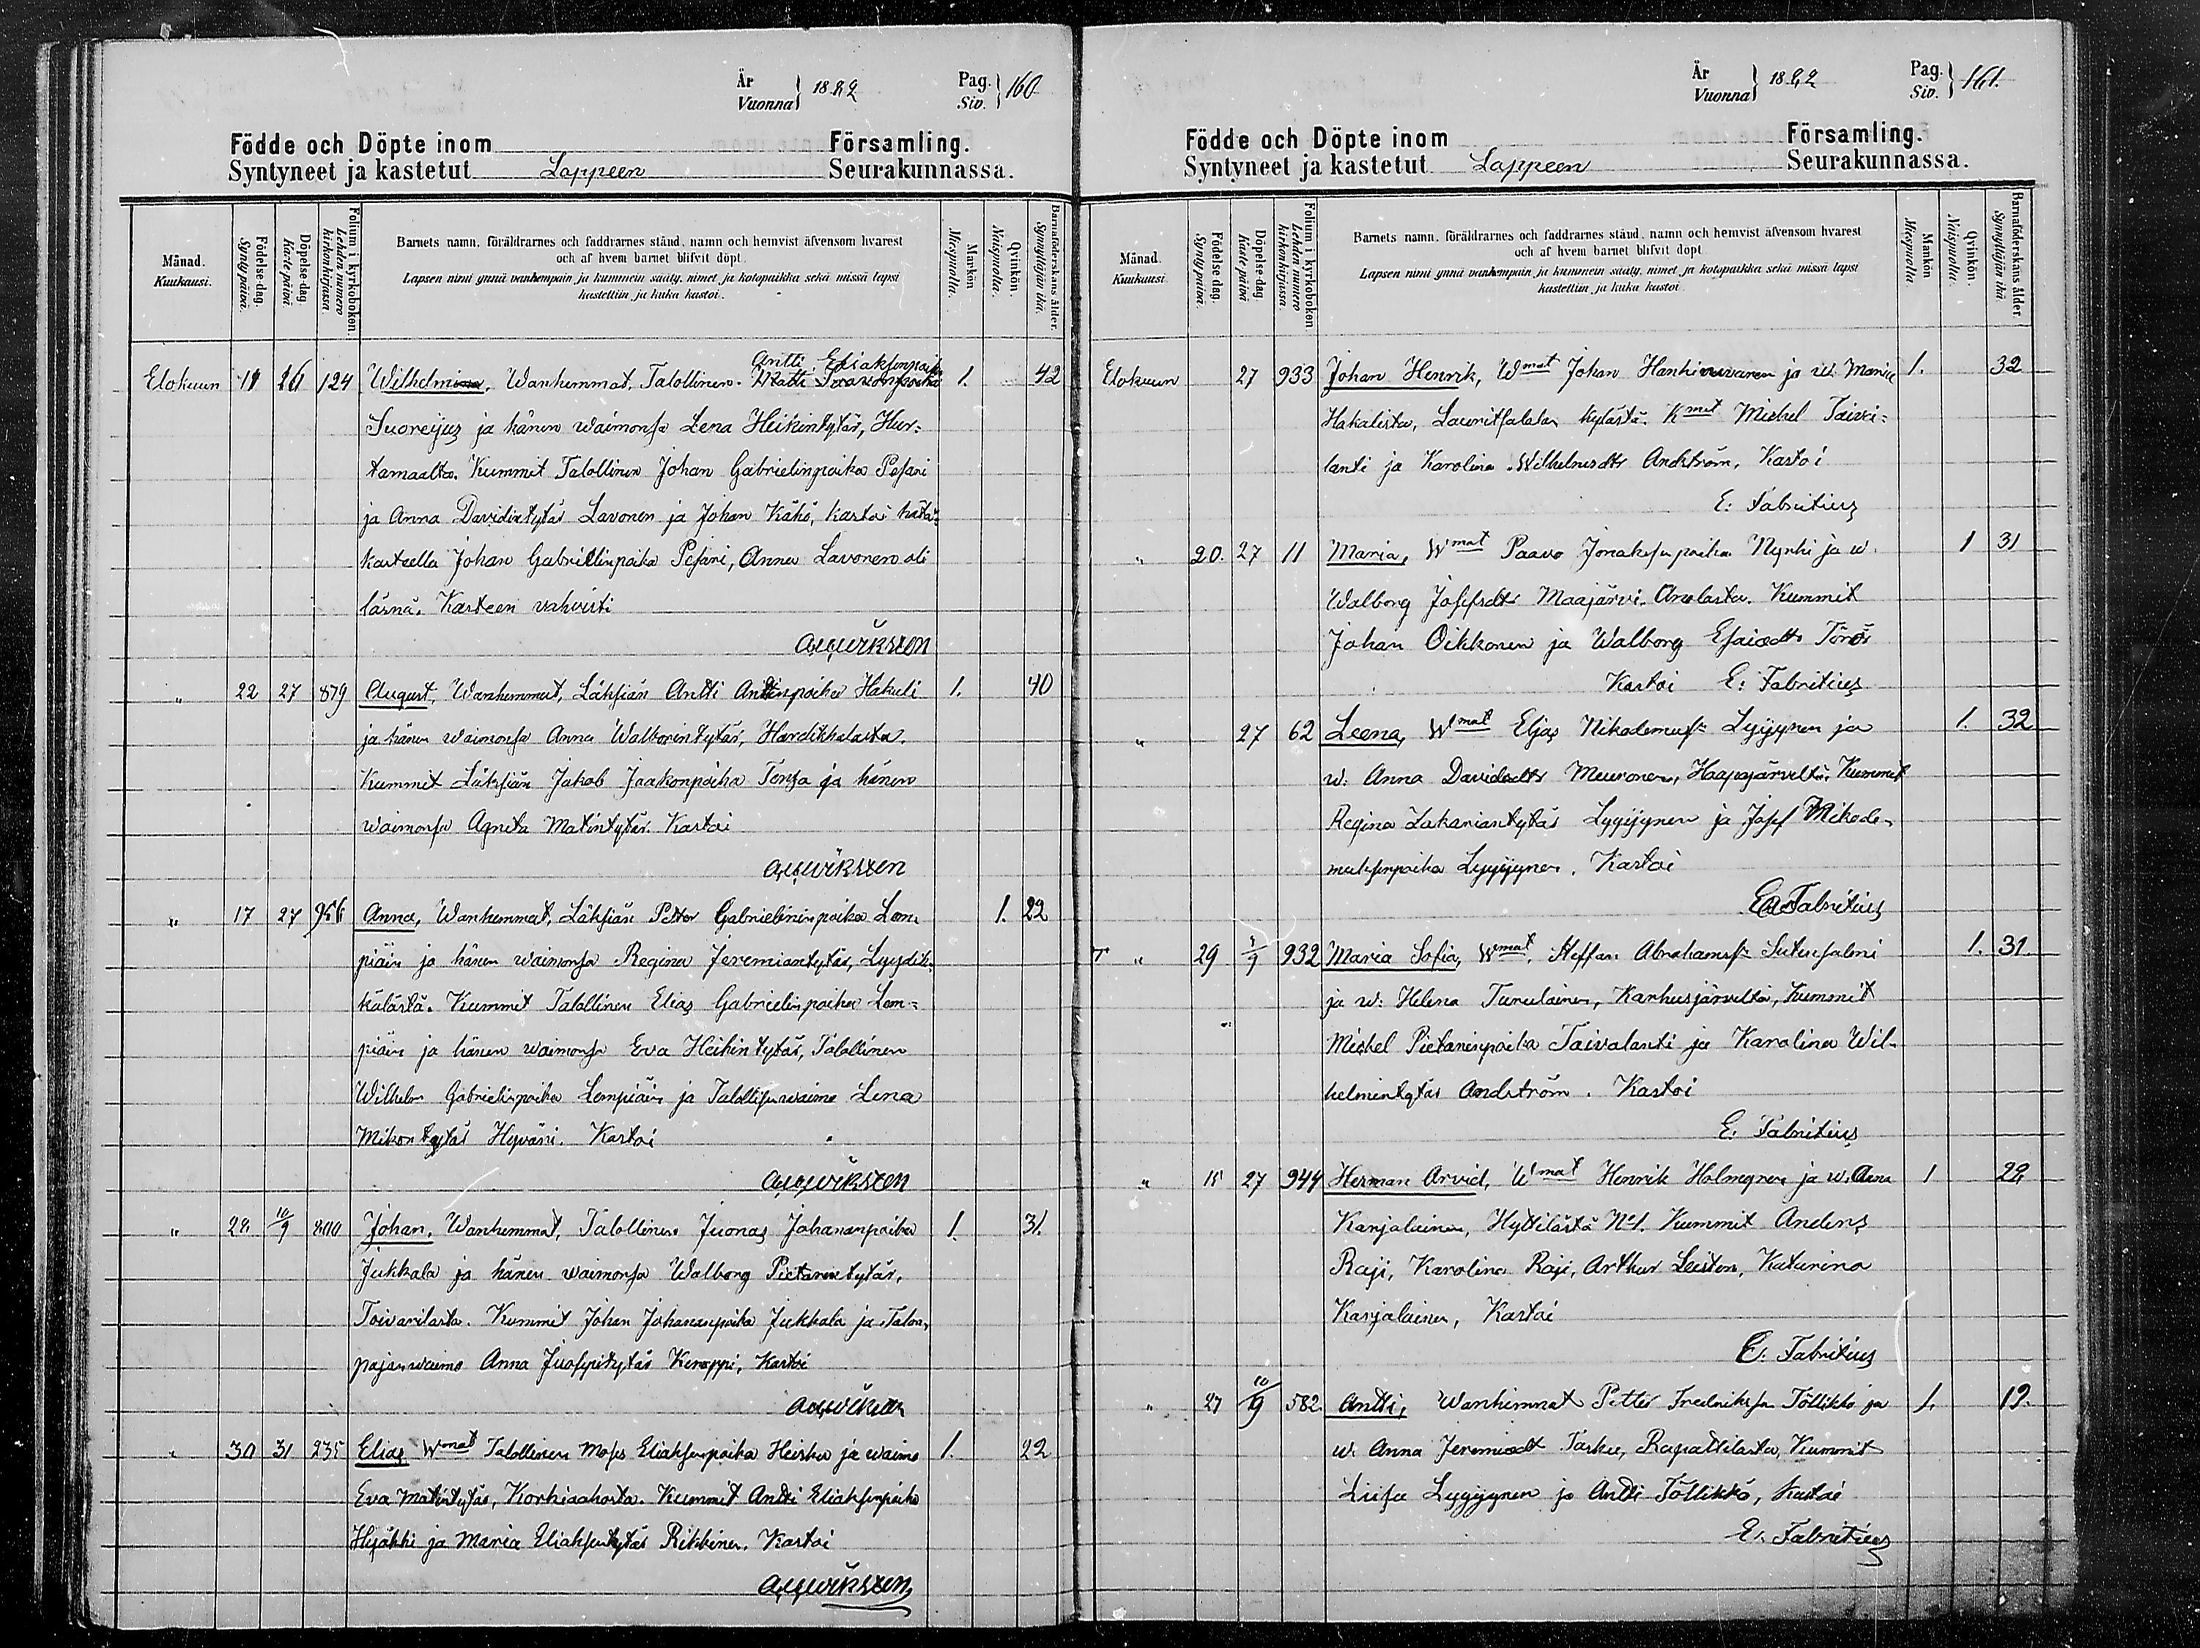 År
Vuonna } 1882 Pag.
Siv. } 160
Födde och Döpte inom Församling.
Syntyneet ja kastetut Lappeen Seurakunnassa.
Månad.
Kuukausi.
Födelse-dag.
Syntypäivä.
Döpelse-dag
Kastepäivä.
Folium i kyrkoboken.
Lehden numero
kirkonkirjassa.
Barnets namn, föräldrarnes och faddrarnes stånd, namn och hemvist äfvensom hvarest
och af hvem barnet blifvit döpt.
Lapsen nimi ynnä vanhempain ja kummein sääty, nimet ja kotopaikka sekä missä lapsi
kastettiin ja kuka kastoi.
Mankön
Miespuolia.
Qvinkön.
Naispuolia.
Barnaföderskans ålder.
Synnyttäjän ikä.
Antti Eliaksenpoika
Elokuun 11 26 124 Wilhelm, Wanhemmat, Talollinen 1. 42
Suoreijus ja hänen waimonsa Lena Heikintytär, Hur-
tamaalta. Kummit Talollinen Johan Gabrielinpoika Pesari
ja Anna Davidintytär Lavonen ja Johan Kähö, kastoi hätä-
kasteella Johan Gabrielinpoika Pesari, Anna Lavonen oli
läsnä. Kasteen vahvisti
" 22 27 879 August, Wanhemmat, Läksiän Antti Antinpoika Hakuli 1. 40
ja hänen waimonsa Anna Walborintytär, Hardikkalasta.
Kummit Läksiän Jakob Jaakonpoika Tenza ja hänen
waimonsa Agneta Matintytär. Kastoi
" 17 27 956 Anna, Wanhemmat, Läksiän Petter Gabrielininpoika Lem- 1. 22
piäin ja hänen waimonsa Regina Jeremiantytär, Lyydik-
kälästä. Kummit Talollinen Elias Gabrielinpoika Lem-
piäin ja hänen waimonsa Eva Heikintytär, Talollinen
Wilhelm Gabrielinpoika Lempiäin ja Talollisenwaimo Lena
Mikontytär Hyväri. Kastoi
" 28 10/9 800 Johan, Wanhemmat, Talollinen Juonas Johananpoika 1. 31.
Jukkala ja hänen waimonsa Walborg Pietarintytär,
Toivarilasta. Kummit Johan Johananpoika Jukkala ja Talon-
pojanwaimo Anna Juosppitytär Kirappi, Kastoi
" 30 31 235 Elias Wmat Talollinen Moses Eliaksenpoika Heisku ja waimo 1. 22
Eva Matintytär, Korkiaahosta. Kummit Antti Eliaksenpoika
Hyjäkki ja Maria Eliaksentytär Rikkinen. Kastoi
År
Vuonna } 1882 Pag.
Siv. } 161.
Födde och Döpte inom Församling.
Syntyneet ja kastetut Lappeen Seurakunnassa.
Månad.
Kuukausi
Födelse-dag.
Syntypäivä.
Döpelse-dag
Kastepäivä
Folium i kyrkoboken
Lehden numero
kirkonkirjassa.
Barnets namn, föräldrarnes och faddrarnes stånd, namn och hemvist äfvensom hvarest
och af hvem barnet blifvit döpt
Lapsen nimi ynnä vanhempain ja kummein sääty, nimet ja kotopaikka sekä missä lapsi
kastettiin ja kuka kastoi
Mankön
Miespuolia
Qvinkön.
Naispuolia.
Barnaföderskans ålder
Synnyttäjän ikä.
Elokuun 27 933 Johan Henrik, Wmat Johan ja w. Maria 1. 32
Hakalista, Lauritsalalan kylästä. Kmit Mickel Taiva-
lanti ja Karolina Wilhelmsdtr Andström, Kastoi
E. Fabritius
" 20. 27 11 Maria, Wmat Paavo Jonaksenpoika Nyrhi ja w. 1 31
Walborg Josefsdtr Maajärvi. Kummit
Johan Oikkonen ja Walborg Esaiasdtr Törös
Kastoi E. Fabritius
" 27 62 Leena, Wmat Eljas Nikodemusn Lyyjynen ja 1. 32
w. Anna Davidsdtr Muuronen, Haapajärveltä. Kummit
Regina Sakariantytär Lyyjynen ja Josef Nikode-
muksenpoika Lyyjynen. Kastoi
E. Fabritius
" 29 1/9 932 Maria Sofia, Wmat. Steffan Abrahamsn Sutensalmi 1. 31.
ja w. Helena Turulainen, Karhusjärveltä, Kummit
Mickel Pietarinpoika Taivalanti ja Karolina Wil-
helmintytär Andström. Kastoi
E. Fabritius
" 15 27 944 Herman Arvid, Wmat Henrik Holmgren ja w. Anna 1 28
Karjalainen, Hyttilästä No 1. Kummit Anders
Raji, Karolina Raji, Arthur Leisten, Katarina
Karjalainen, Kastoi
E. Fabritius
" 27 10/9 582 Antti, Wanhimmat Petter Fredriksn Töllikkö ja 1. 19.
w. Anna Jeremiadtr Tarku, Rapattilasta, Kummit
Liisa Lyyjynen ja Antti Töllikkö, kastoi
E. Fabritius